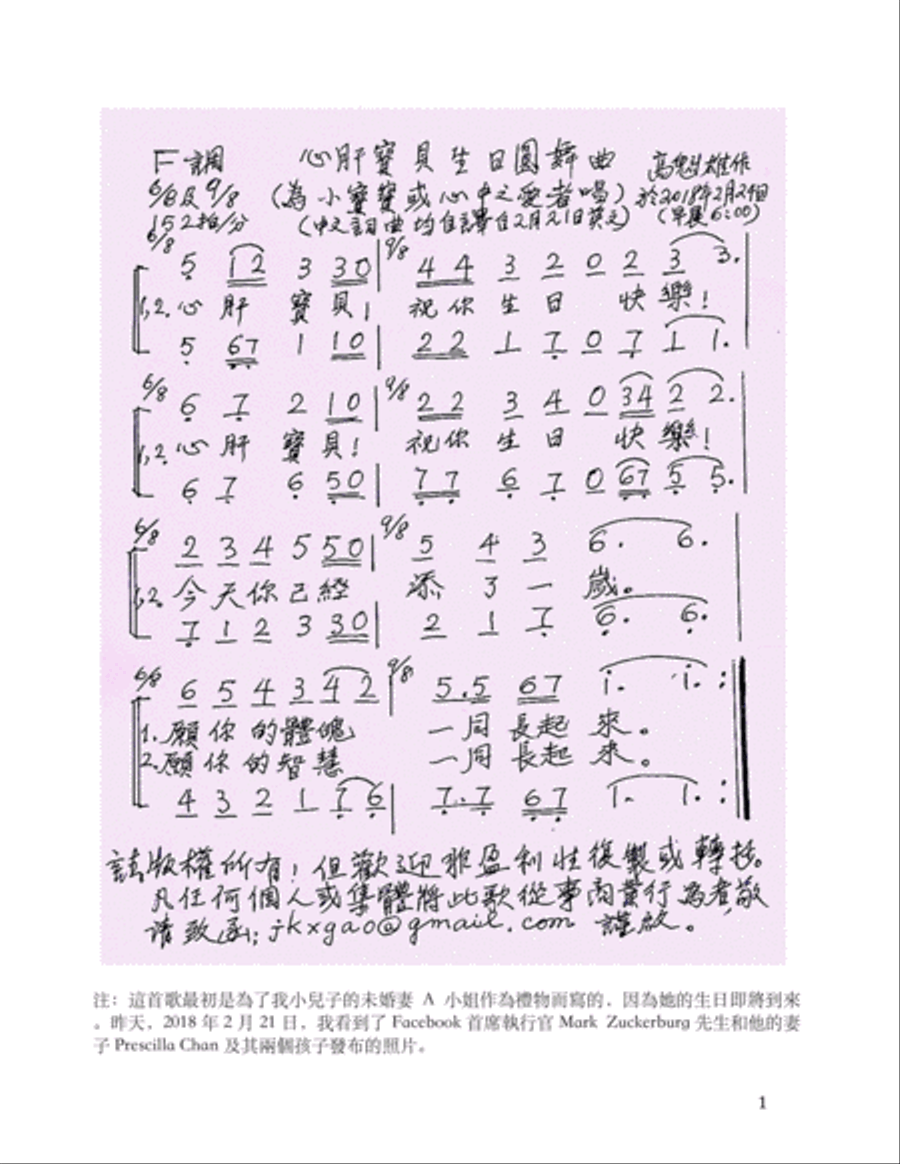 F調 心肝寶貝生日圓舞曲 高魁雄作
6/8及9/8 (為小寶寶或心中之愛者唱) 於2018年2月22日
152拍/分 (中文詞曲均自譯自2月21日英文) (早晨6:00)
6/8 5 12 3 30 | 9/8 44 3 2 0 2 3 3. |
1,2. 心肝 寶貝! 祝你 生日 快樂!
5 67 1 10 | 22 1 7 0 7 1 1. |
6/8 6 7 2 10 | 9/8 22 3 4 0 34 2 2. |
1,2. 心肝 寶貝! 祝你 生日 快樂!
6 7 6 50 | 77 6 7 0 67 5 5. |
6/8 2 3 4 5 50 | 9/8 5 4 3 6. 6. |
1,2. 今天你已經 添了一 歲。
7 1 2 3 30 | 2 1 7 6. 6. |
6/8 6 5 4 3 4 2 | 9/8 5.5 67 1. 1. :||
1.願你的體魄 一同 長起 來。
2.願你的智慧 一同 長起 來。
4 3 2 1 7 6 | 7.7 67 1. 1. :||
版權所有! 但歡迎非盈利性復製或轉抄。
凡任何個人或集體將此歌從事商業行為者,敬
请致函: jkxgao@gmail.com 謹啟。
注: 這首歌最初是為了我小兒子的未婚妻 A 小姐作為禮物而寫的, 因為她的生日即將到來
。昨天, 2018 年 2 月 21 日, 我看到了 Facebook 首席執行官 Mark Zuckerburg 先生和他的妻
子 Prescilla Chan 及其兩個孩子發布的照片。
1